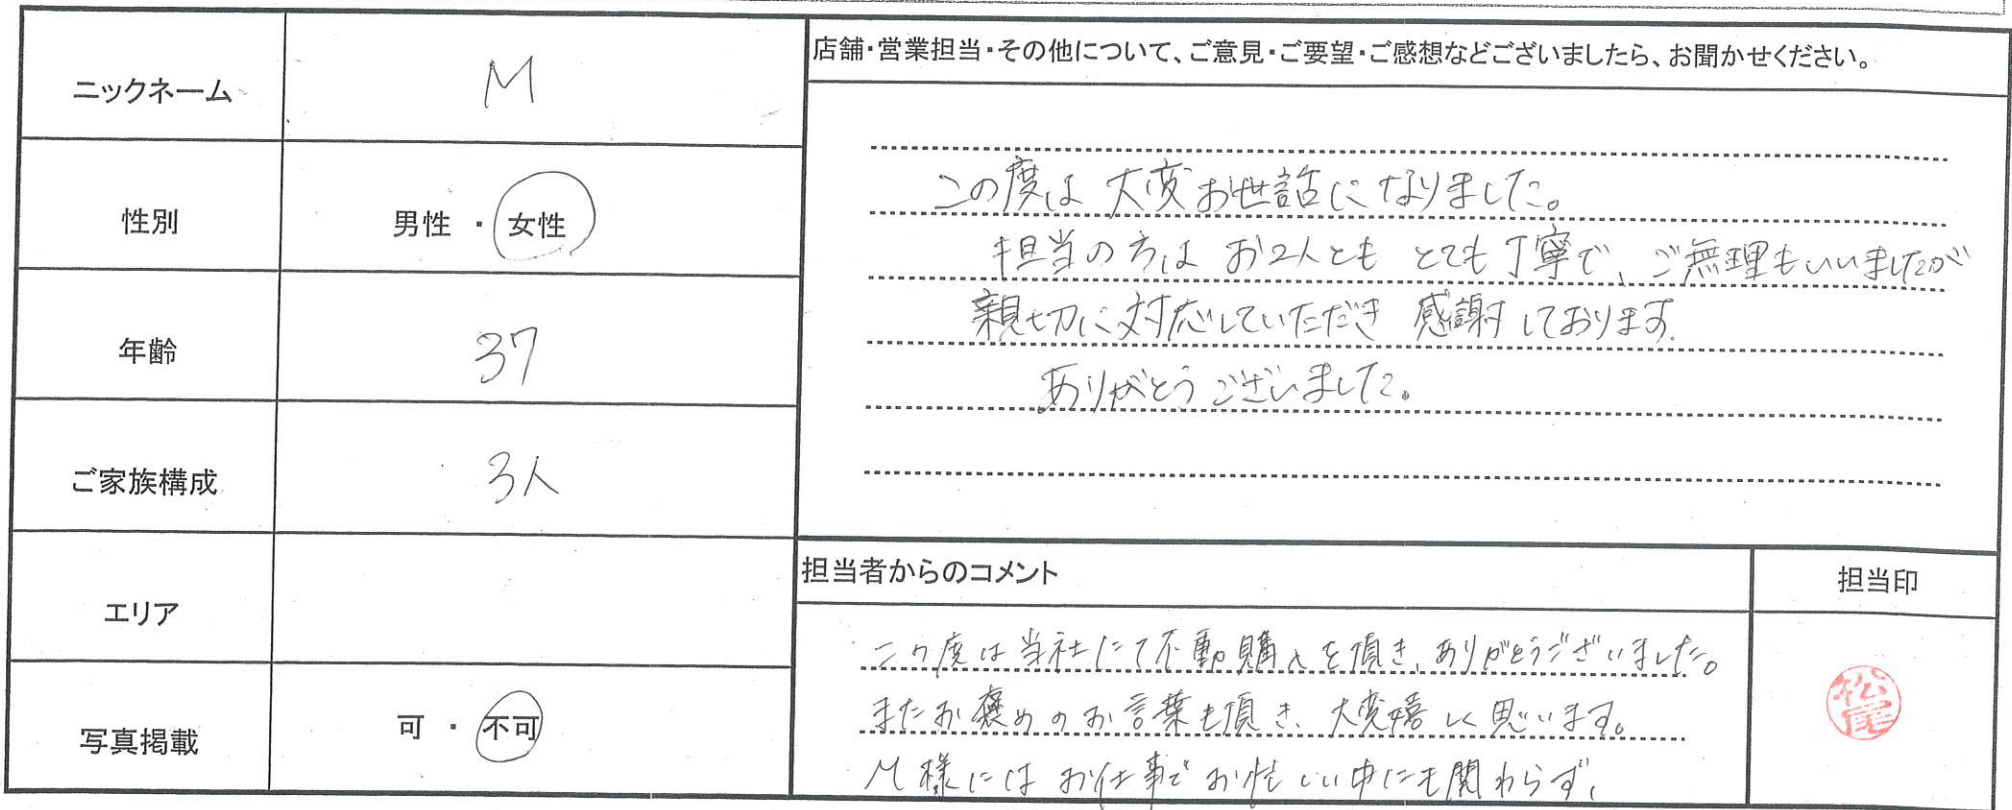 ニックネーム
M
性別
男性 ・ 女性
年齢
37
ご家族構成
3人
エリア
写真掲載
可 ・ 不可
店舗・営業担当・その他について、ご意見・ご要望・ご感想などございましたら、お聞かせください。
この度は 大変お世話になりました。
担当の方は お2人とも とても丁寧で、ご無理もいいましたが
親切に対応していただき 感謝しております。
ありがとうございました。
担当者からのコメント
この度は当社にて不動購入を頂き、ありがとうございました。
またお褒めのお言葉も頂き、大変嬉しく思います。
M様にはお仕事でお忙しい中にも関わらず、
担当印
松尾